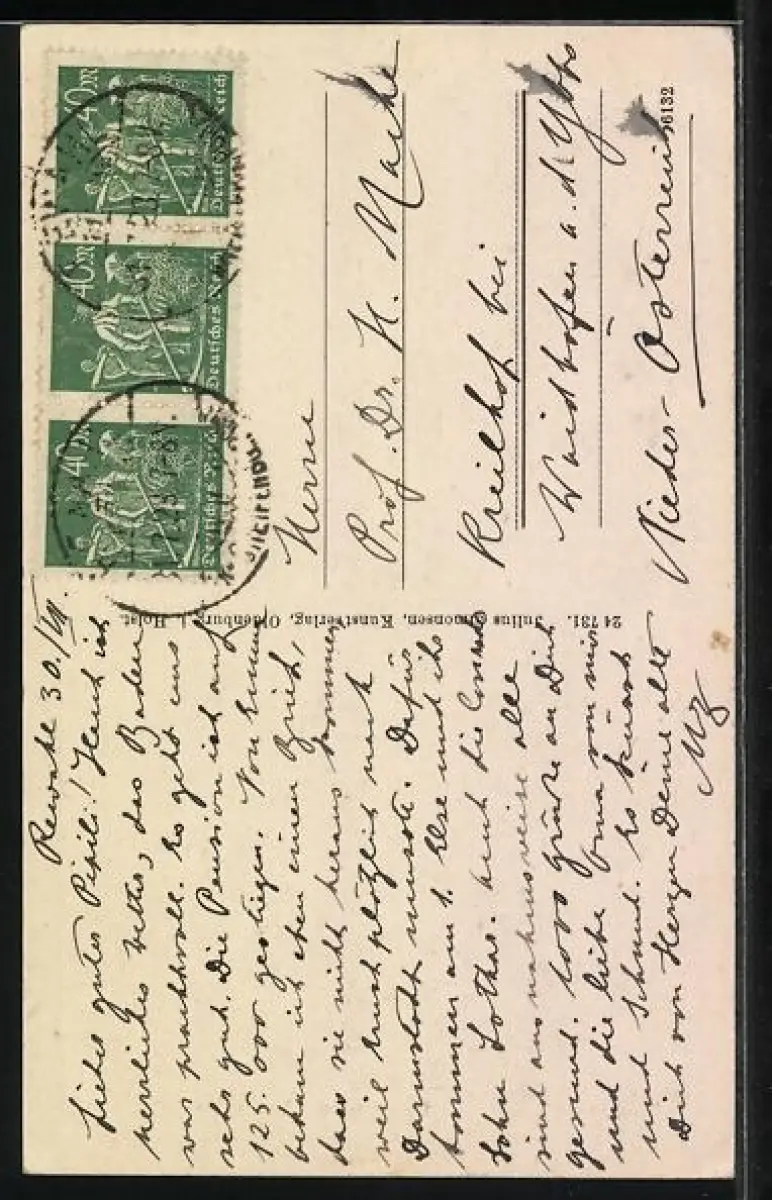 Rewahl 30./VII.
Liebes gutes Pipili! Heute ist
herrliches Wetter, das Baden
war prachtvoll. Es geht uns
sehr gut. Die Pension ist auf
125.000 gestiegen. Von
bekam ich eben einen Brief,
dass sie nicht heraus kommen
weil Kurt plötzlich nach
Darmstadt musste. Dafür
kommen am 1. Else und ihr
Sohn Lothar. Auch die
sind ausnahmsweise alle
gesund. 1000 Grüße an Dich
und die liebe Oma von mir
und Schnut. Es küsst
Dich von Herzen Deine alte
24 731. Julius Simonsen, Kunstverlag, Oldenburg i. Holst.
6132
Herrn
Prof. Dr. K.
Kreilhof bei
Waidhofen a. d. Ybbs
Nieder-Österreich
40 M
Deutsches Reich
40 M
Deutsches Reich
40 M
Deutsches Reich